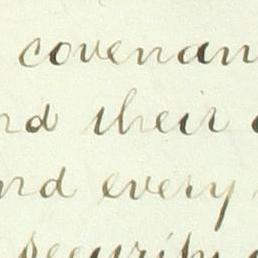 covenan
nd their
nd every
security